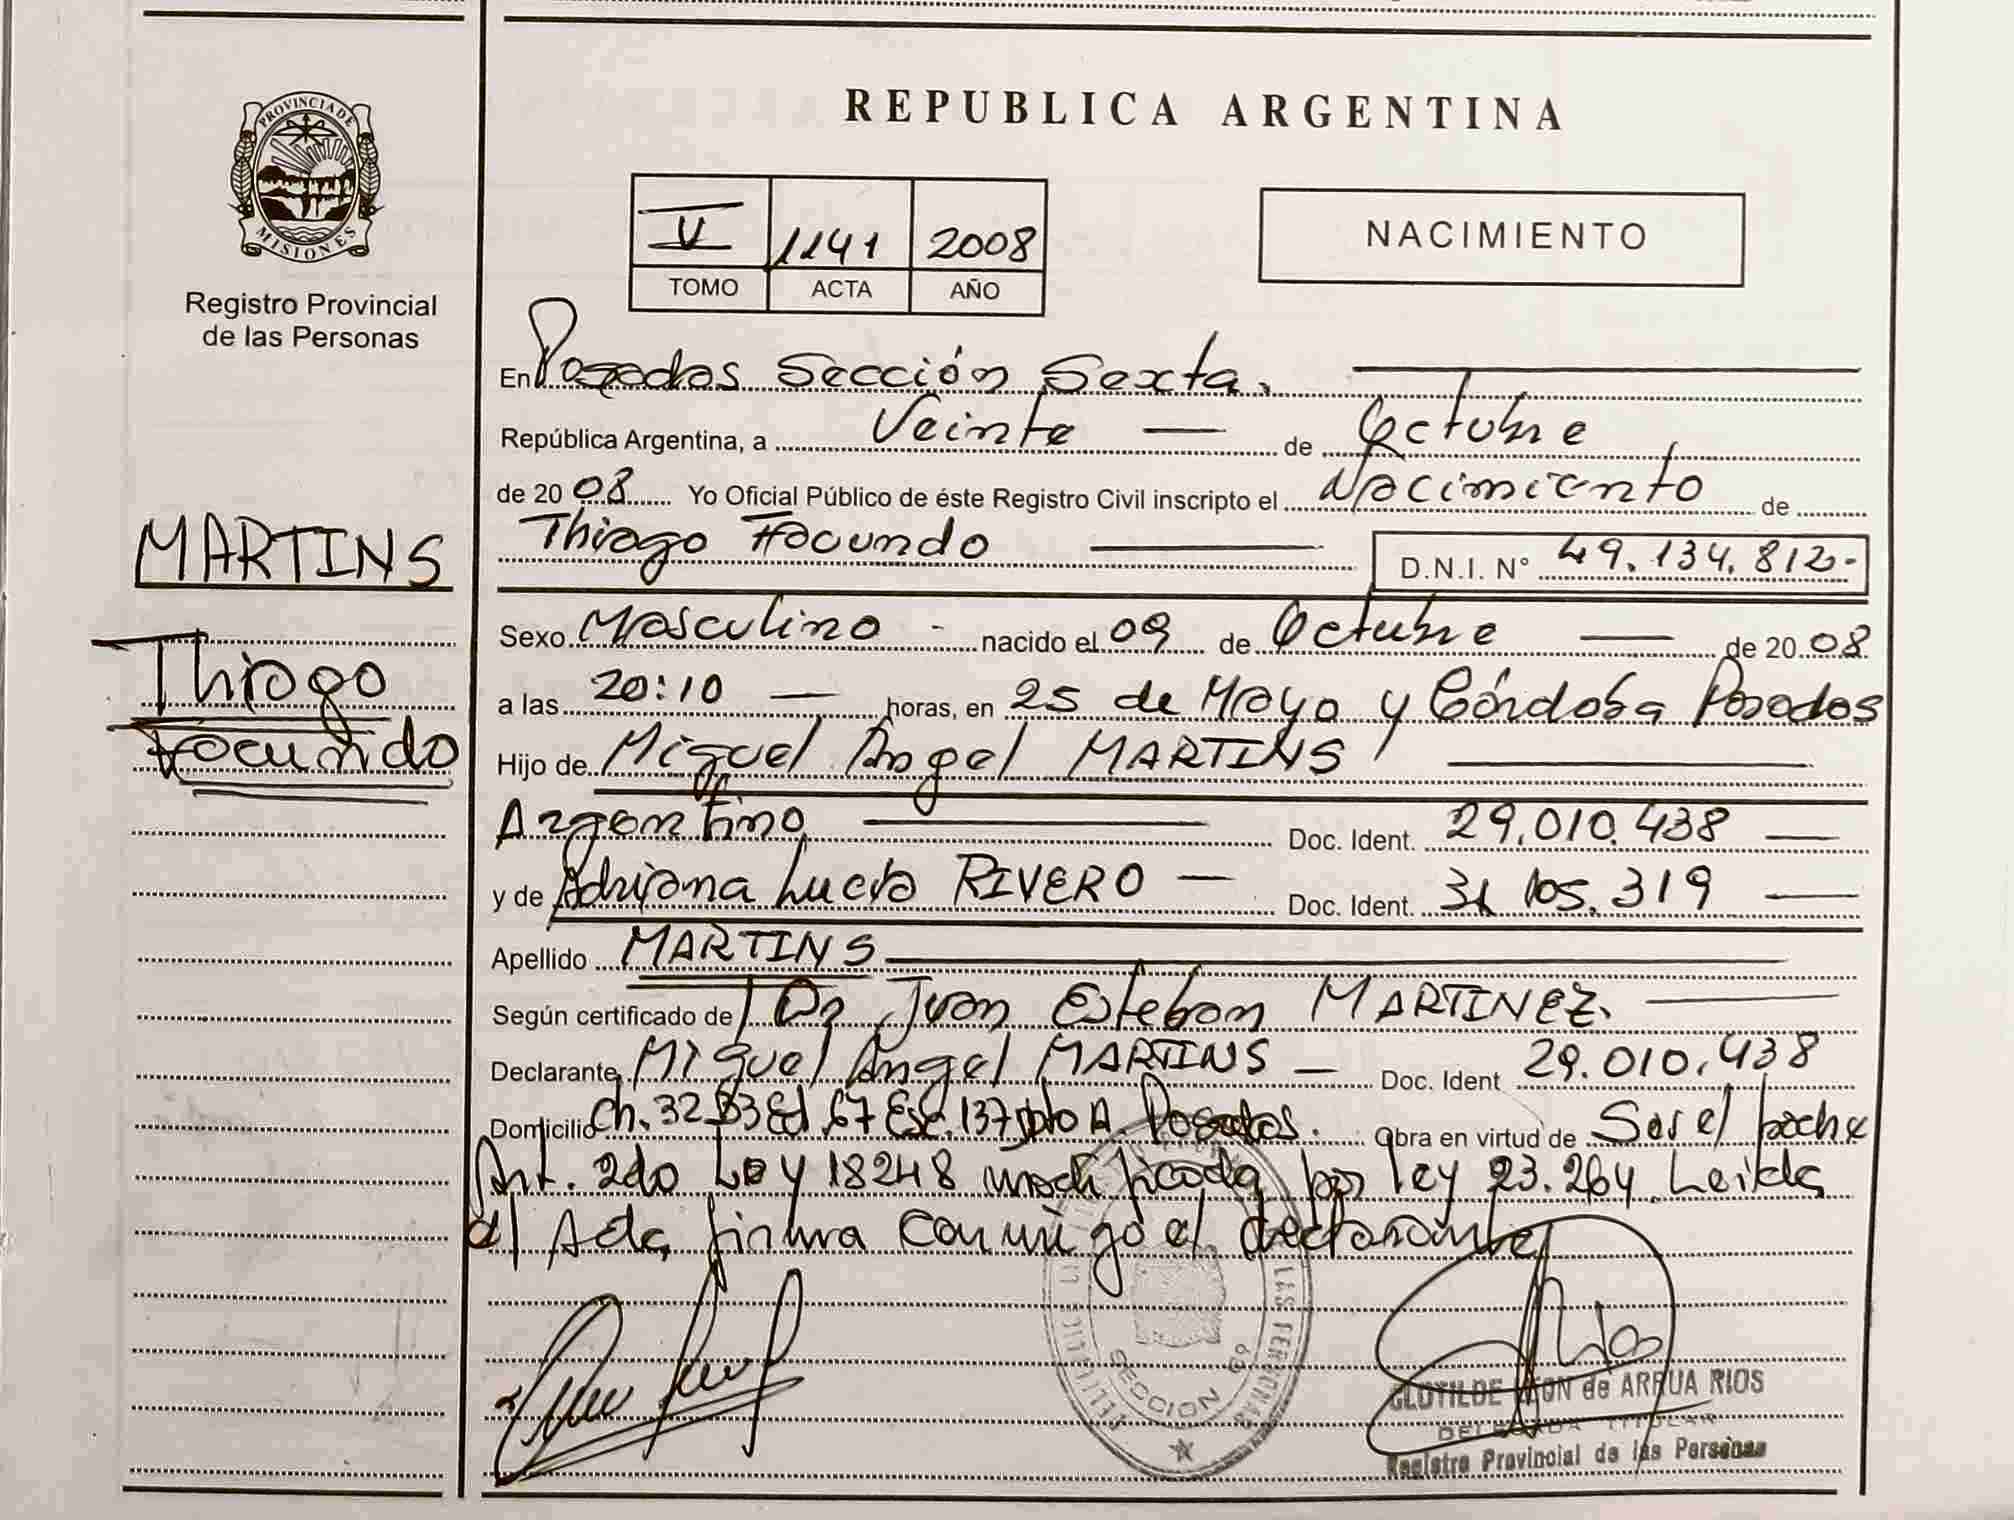 REPUBLICA ARGENTINA
PROVINCIA DE
MISIONES
Registro Provincial
de las Personas
V 1141 2008
TOMO ACTA AÑO
NACIMIENTO
En Posadas Sección Sexta.
República Argentina, a Veinte — de Octubre
de 2008 Yo Oficial Público de éste Registro Civil inscripto el Nacimiento de
Thiago Facundo — D.N.I. N° 49.134.812-
MARTINS
Thiago
Facundo
Sexo Masculino - nacido el 09 de Octubre — de 2008
a las 20:10 — horas, en 25 de Mayo y Córdoba Posadas
Hijo de Miguel Ángel MARTINS —
Argentino — Doc. Ident. 29.010.438 —
y de Adriana Lucia RIVERO — Doc. Ident. 31.105.319 —
Apellido MARTINS —
Según certificado de Dr Juan Esteban MARTINEZ. —
Declarante Miguel Ángel MARTINS — Doc. Ident 29.010.438
Domicilio Ch. 32 33 Ed. 67 Esc. 137 Dpto A. Posadas. Obra en virtud de Ser el padre
Art. 2do Ley 18248 modificada por ley 23.264. Leida
el Acta, firma conmigo el declarante
LAS PERSONAS
SECCION 6ª
CLOTILDE LEON de ARRUA RIOS
DELEGADA TITULAR
Registro Provincial de las Personas